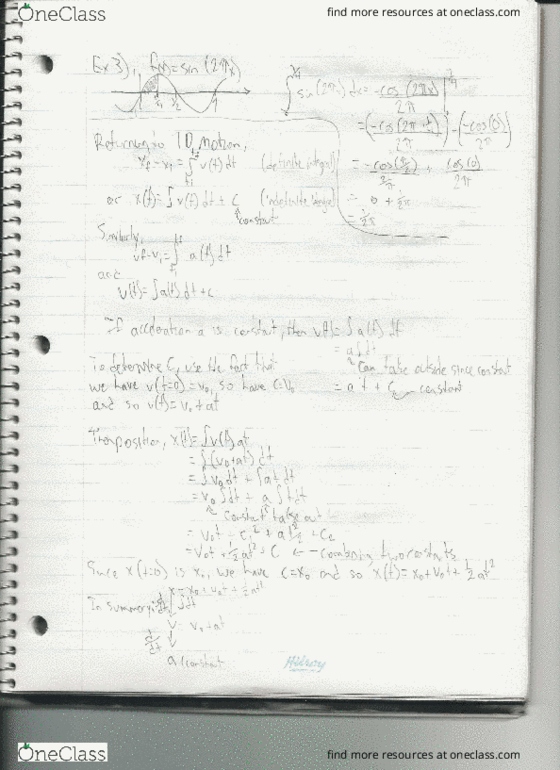 OneClass
find more resources at oneclass.com
Ex 3), f(x) = sin (2πx)
∫ sin (2πx) dx = -cos (2πx)
2π
= (-cos(2π · ) - (-cos(0))
2π 2π
= -cos( ) + cos(0)
2π
= 0 + 1/2π
= 1/2π
Returning to 1D motion,
xf - xi = ∫ v(t) dt (definite integral)
or x(t) = ∫ v(t) dt + C (indefinite integral)
constant
Similarly,
vf - vi = ∫ a(t) dt
and
v(t) = ∫ a(t) dt + c
If acceleration a is constant, then v(t) = ∫ a(t) dt
= a ∫ dt
can take outside since constant
= a t + C constant
To determine C, use the fact that
we have v(t=0) = v0, so have C = v0
and so v(t) = v0 + at
position, x(t) = ∫ v(t) dt
= ∫ (v0 + at) dt
= ∫ v0 dt + ∫ at dt
= v0 ∫ dt + a ∫ t dt
constant take out
= v0t + c1 + a t²/2 + C2
= v0t + 1/2 at² + C ← combining two constants
Since x(t=0) is x0, we have C = x0 and so x(t) = x0 + v0t + 1/2 at²
In summary: x = x0 + v0t + 1/2 at²
d/dt ∫ dt
v = v0 + at
d/dt
a (constant
Hilroy
OneClass
find more resources at oneclass.com